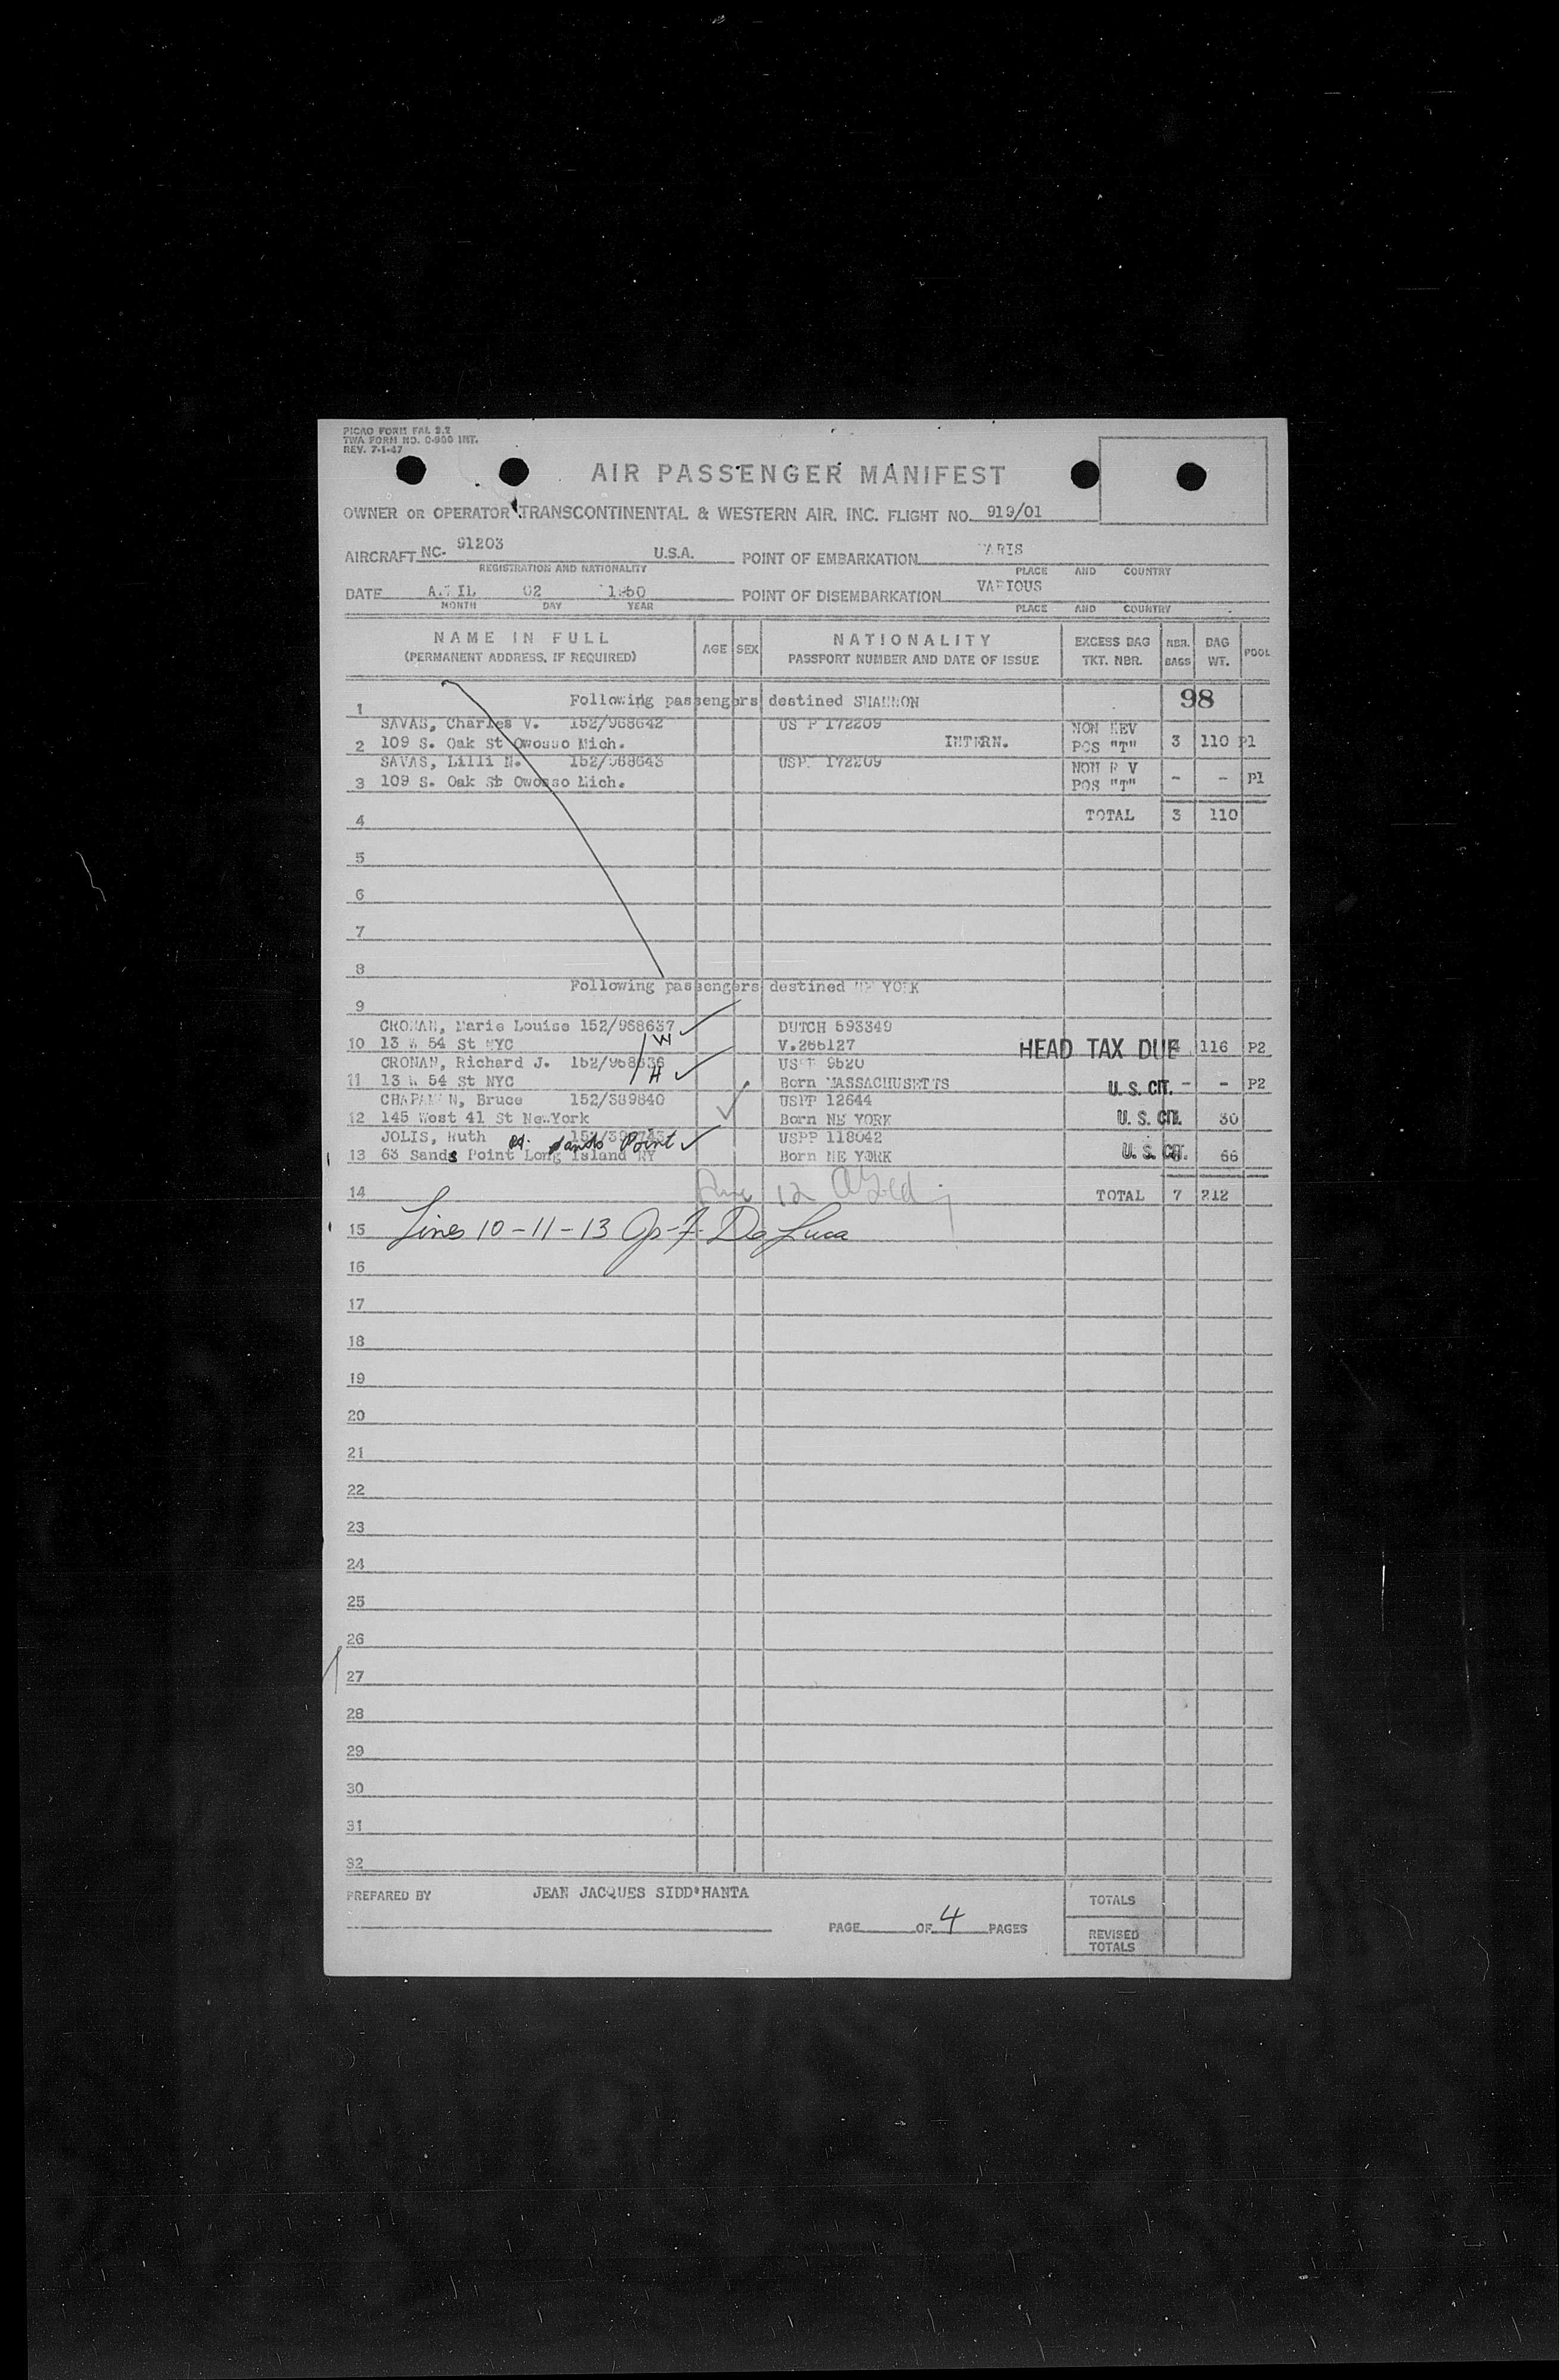 PICAO FORM FAL 2.2
TWA FORM NO. C-900 INT.
REV. 7-1-47
AIR PASSENGER MANIFEST
OWNER OR OPERATOR TRANSCONTINENTAL & WESTERN AIR. INC. FLIGHT NO. 919/01
AIRCRAFT NC- 91203 U.S.A. POINT OF EMBARKATION PARIS
REGISTRATION AND NATIONALITY PLACE AND COUNTRY
DATE APRIL 02 1950 POINT OF DISEMBARKATION VARIOUS
MONTH DAY YEAR PLACE AND COUNTRY
NAME IN FULL AGE SEX NATIONALITY EXCESS BAG NBR. BAG POOL
(PERMANENT ADDRESS, IF REQUIRED) PASSPORT NUMBER AND DATE OF ISSUE TKT. NBR. BAGS WT.
1 Following passengers destined SHANNON 98
SAVAS, Charles V. 152/968642 US P 172209 NON REV
2 109 S. Oak St Owosso Mich. INTERN. POS "T" 3 110 P1
SAVAS, Lilli N. 152/968643 USP 172209 NON R V
3 109 S. Oak St Owosso Mich. POS "T" - - P1
4 TOTAL 3 110
5
6
7
8
Following passengers destined NE YORK
9
CRONAN, Marie Louise 152/968637 DUTCH 593349
10 13 W 54 St NYC W V.266127 HEAD TAX DUE 116 P2
CRONAN, Richard J. 152/968636 USPP 9520
11 13 W 54 St NYC H Born MASSACHUSETTS U. S. CIT. - - P2
CHAPMAN, Bruce 152/389840 USPP 12644
12 145 West 41 St New York Born NE YORK U. S. CIT. 30
JOLIS, Ruth Sands Point USPP 118042
13 63 Sands Point Long Island NY Born NE YORK U. S. CIT. 66
14 Line 12 TOTAL 7 212
15 Lines 10-11-13 De Luca
16
17
18
19
20
21
22
23
24
25
26
27
28
29
30
31
32
PREPARED BY JEAN JACQUES SIDD'HANTA TOTALS
PAGE OF 4 PAGES
REVISED
TOTALS